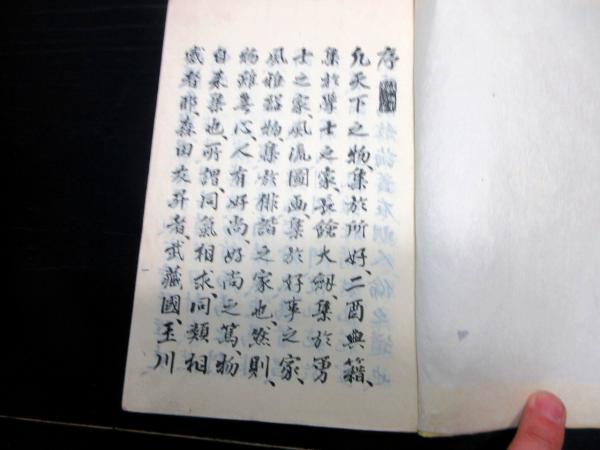 序
凢天下之物、集於所好、二酉典籍、
集於學士之家、長鎗大劔、集於勇
士之家、風流圖画、集於好事之家、
風雅器物、集於俳諧之家也、然則、
物雖無心、人有好尚、好尚之篤、物
自来集也、所謂同氣相求、同類相
感者耶、森田友昇者、武藏國玉川